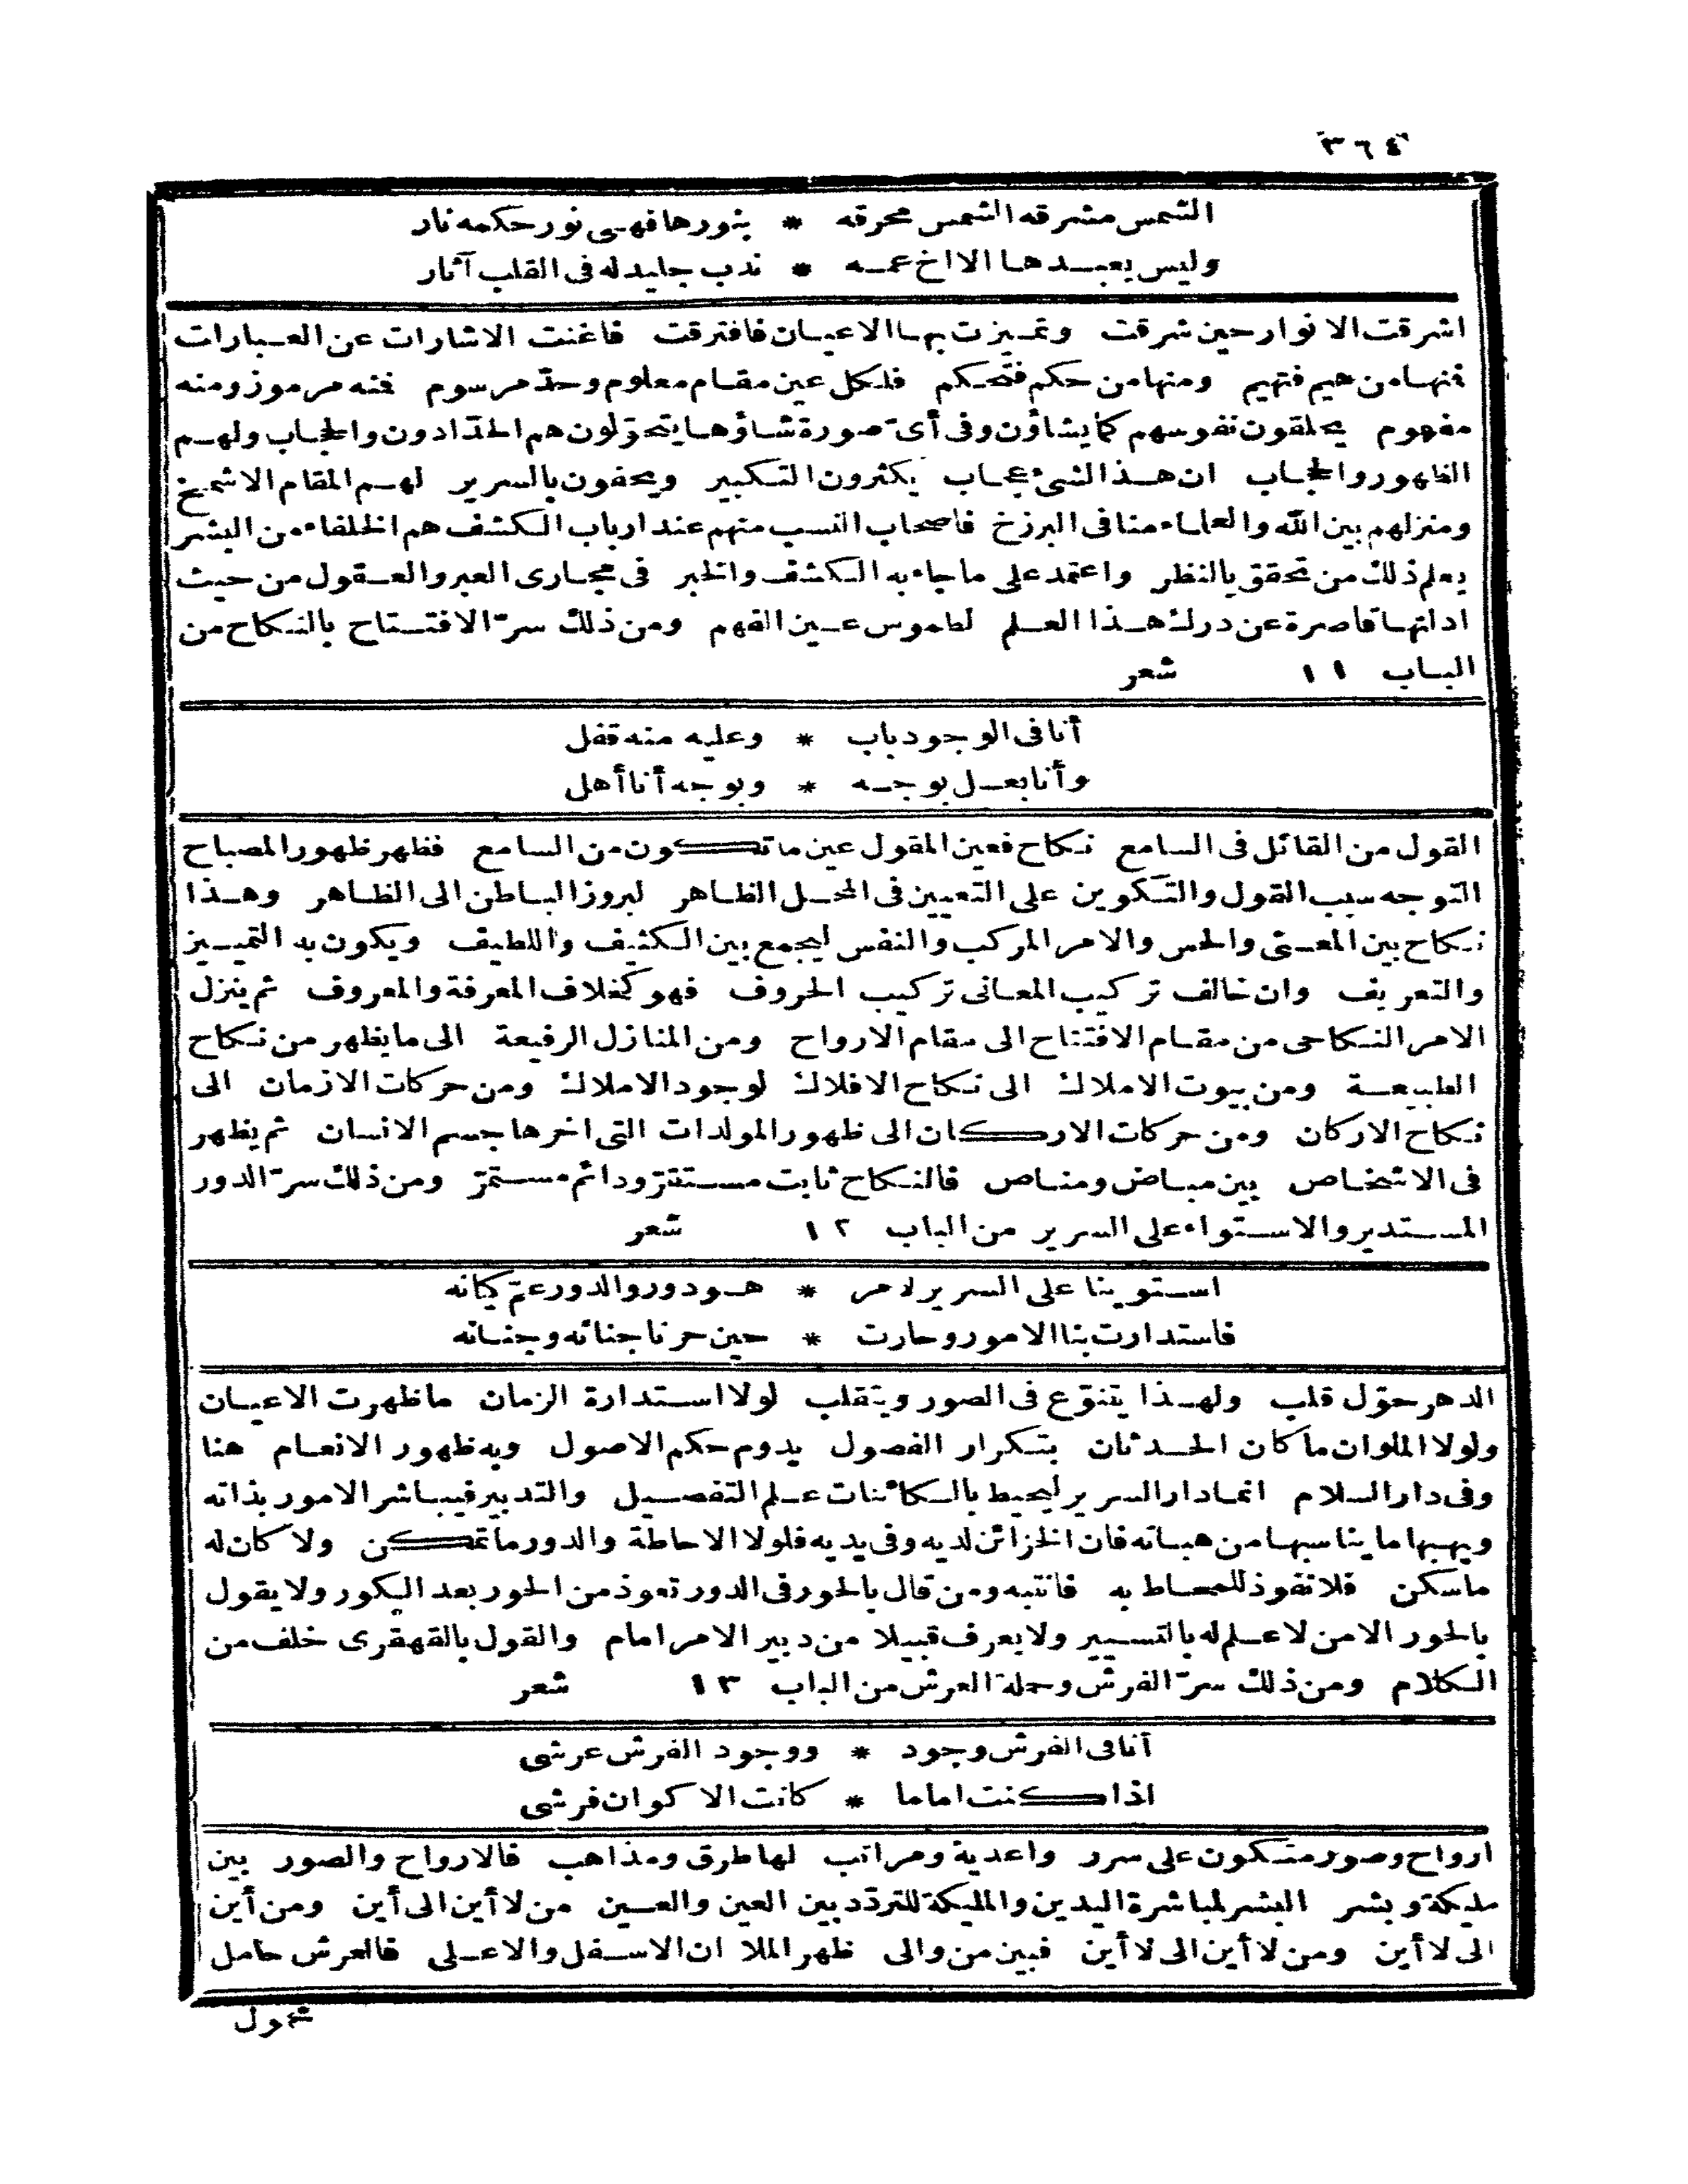 ٣٦٤
الشمس مشرقه الشمس محرقه * بنورها فهى نور حكمه نار
وليس يعبدها الا اخ عمه * ندب جليد له فى القلب آثار
اشرقت الانوار حين شرقت وتميزت بها الاعيان فافترقت فاغنت الاشارات عن العبارات
فنها من هيم فتهيم ومنها من حكم فتحكم فلكل عين مقام معلوم وحدّ مرسوم فنه مرموز ومنه
مفهوم يحلقون نفوسهم كما يشاؤن وفى أىّ صورة شاؤها يتحوّلون هم الحدّادون والحجاب ولهم
الظهور والحجاب ان هذا لشئ عجاب يكثرون التكبير ويحفون بالسرير لهم المقام الاشمخ
ومنزلهم بين الله والعلماء منا فى البرزخ فاصحاب النسب منهم عند ارباب الكشف هم الخلفاء من البشر
يعلم ذلك من تحقق بالنظر واعتمد على ما جاء به الكشف والخبر فى مجارى العبر والعقول من حيث
ادلتها قاصرة عن درك هذا العلم لطموس عين الفهم ومن ذلك سرّ الافتتاح بالنكاح من
الباب ١١ شعر
أنا فى الوجود باب * وعليه منه قفل
وأنا بعل بوجه * وبوجه أنا أهل
القول من القائل فى السامع نكاح فعين المقول عين ما تكون من السامع فظهر ظهور المصباح
التوجه سبب القول والتكوين على التعيين فى المحل الظاهر لبروز الباطن الى الظاهر وهذا
نكاح بين المعنى والحس والامر المركب والنفس ليجمع بين الكثيف واللطيف ويكون به التمييز
والتعريف وان خالف تركيب المعانى تركيب الحروف فهو كخلاف المعرفة والمعروف ثم ينزل
الامر النكاحى من مقام الافتتاح الى مقام الارواح ومن المنازل الرفيعة الى ما يظهر من نكاح
الطبيعة ومن بيوت الاملاك الى نكاح الافلاك لوجود الاملاك ومن حركات الازمان الى
نكاح الاركان ومن حركات الاركان الى ظهور المولدات التى اخرها جسم الانسان ثم يظهر
فى الاشخاص بين مباض ومناص فالنكاح ثابت مستقرّ ودائم مستمرّ ومن ذلك سرّ الدور
المستدير والاستواء على السرير من الباب ١٢ شعر
استوينا على السرير لامر * هو دور والدور عمّ كيانه
فاستدارت بنا الامور وحارت * حين حرنا جنانه وجنانه
الدهر حوّل قلب ولهذا يتنوّع فى الصور ويتقلب لولا استدارة الزمان ما ظهرت الاعيان
ولولا الملوان ما كان الحدثان بتكرار الفصول يدوم حكم الاصول وبه ظهور الانعام هنا
وفى دار السلام انما دار السرير ليحيط بالكائنات علم التفصيل والتدبير فيباشر الامور بذاته
ويهبها ما يناسبها من هباته فان الخزائن لديه وفى يديه فلولا الاحاطة والدور ما تمكن ولا كان له
ما سكن فلا نفوذ للمحاط به فانتبه ومن قال بالحور فى الدور تعوذ من الحور بعد الكور ولا يقول
بالحور الا من لا علم له بالتسيير ولا يعرف قبيلا من دبير الامر امام والقول بالقهقرى خلف من
الكلام ومن ذلك سرّ الفرش وحملة العرش من الباب ١٣ شعر
أنا فى الفرش وجود * ووجود الفرش عرشى
اذا كنت اماما * كانت الاكوان فرشى
ارواح وصور متكون على سرر واغدية ومراتب لها طرق ومذاهب فالارواح والصور بين
مليكة وبشر البشر لمباشرة اليدين والمليكة للتردّد بين العين والعين من لا أين الى أين ومن أين
الى لا أين ومن لا أين الى لا أين فبين من والى ظهر الملا ان الاسفل والاعلى فالعرش حامل
شمول